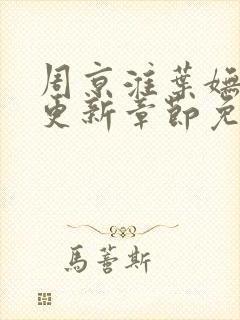 周京淮葉嫵
更新章節免
馬薈斯